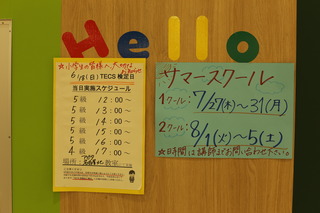 Hello
☆小学生の皆様へ大切な
お知らせ
6/18(日) TECS 検定日
当日実施スケジュール
5級 12:00~
5級 13:00~
5級 14:00~
5級 15:00~
5級 16:00~
4級 17:00~
場所:
教室
サマースクール
1クール:7/27(木)~31(月)
2クール:8/1(火)~5(土)
☆日時間は講師までお問い合わせ下さい。